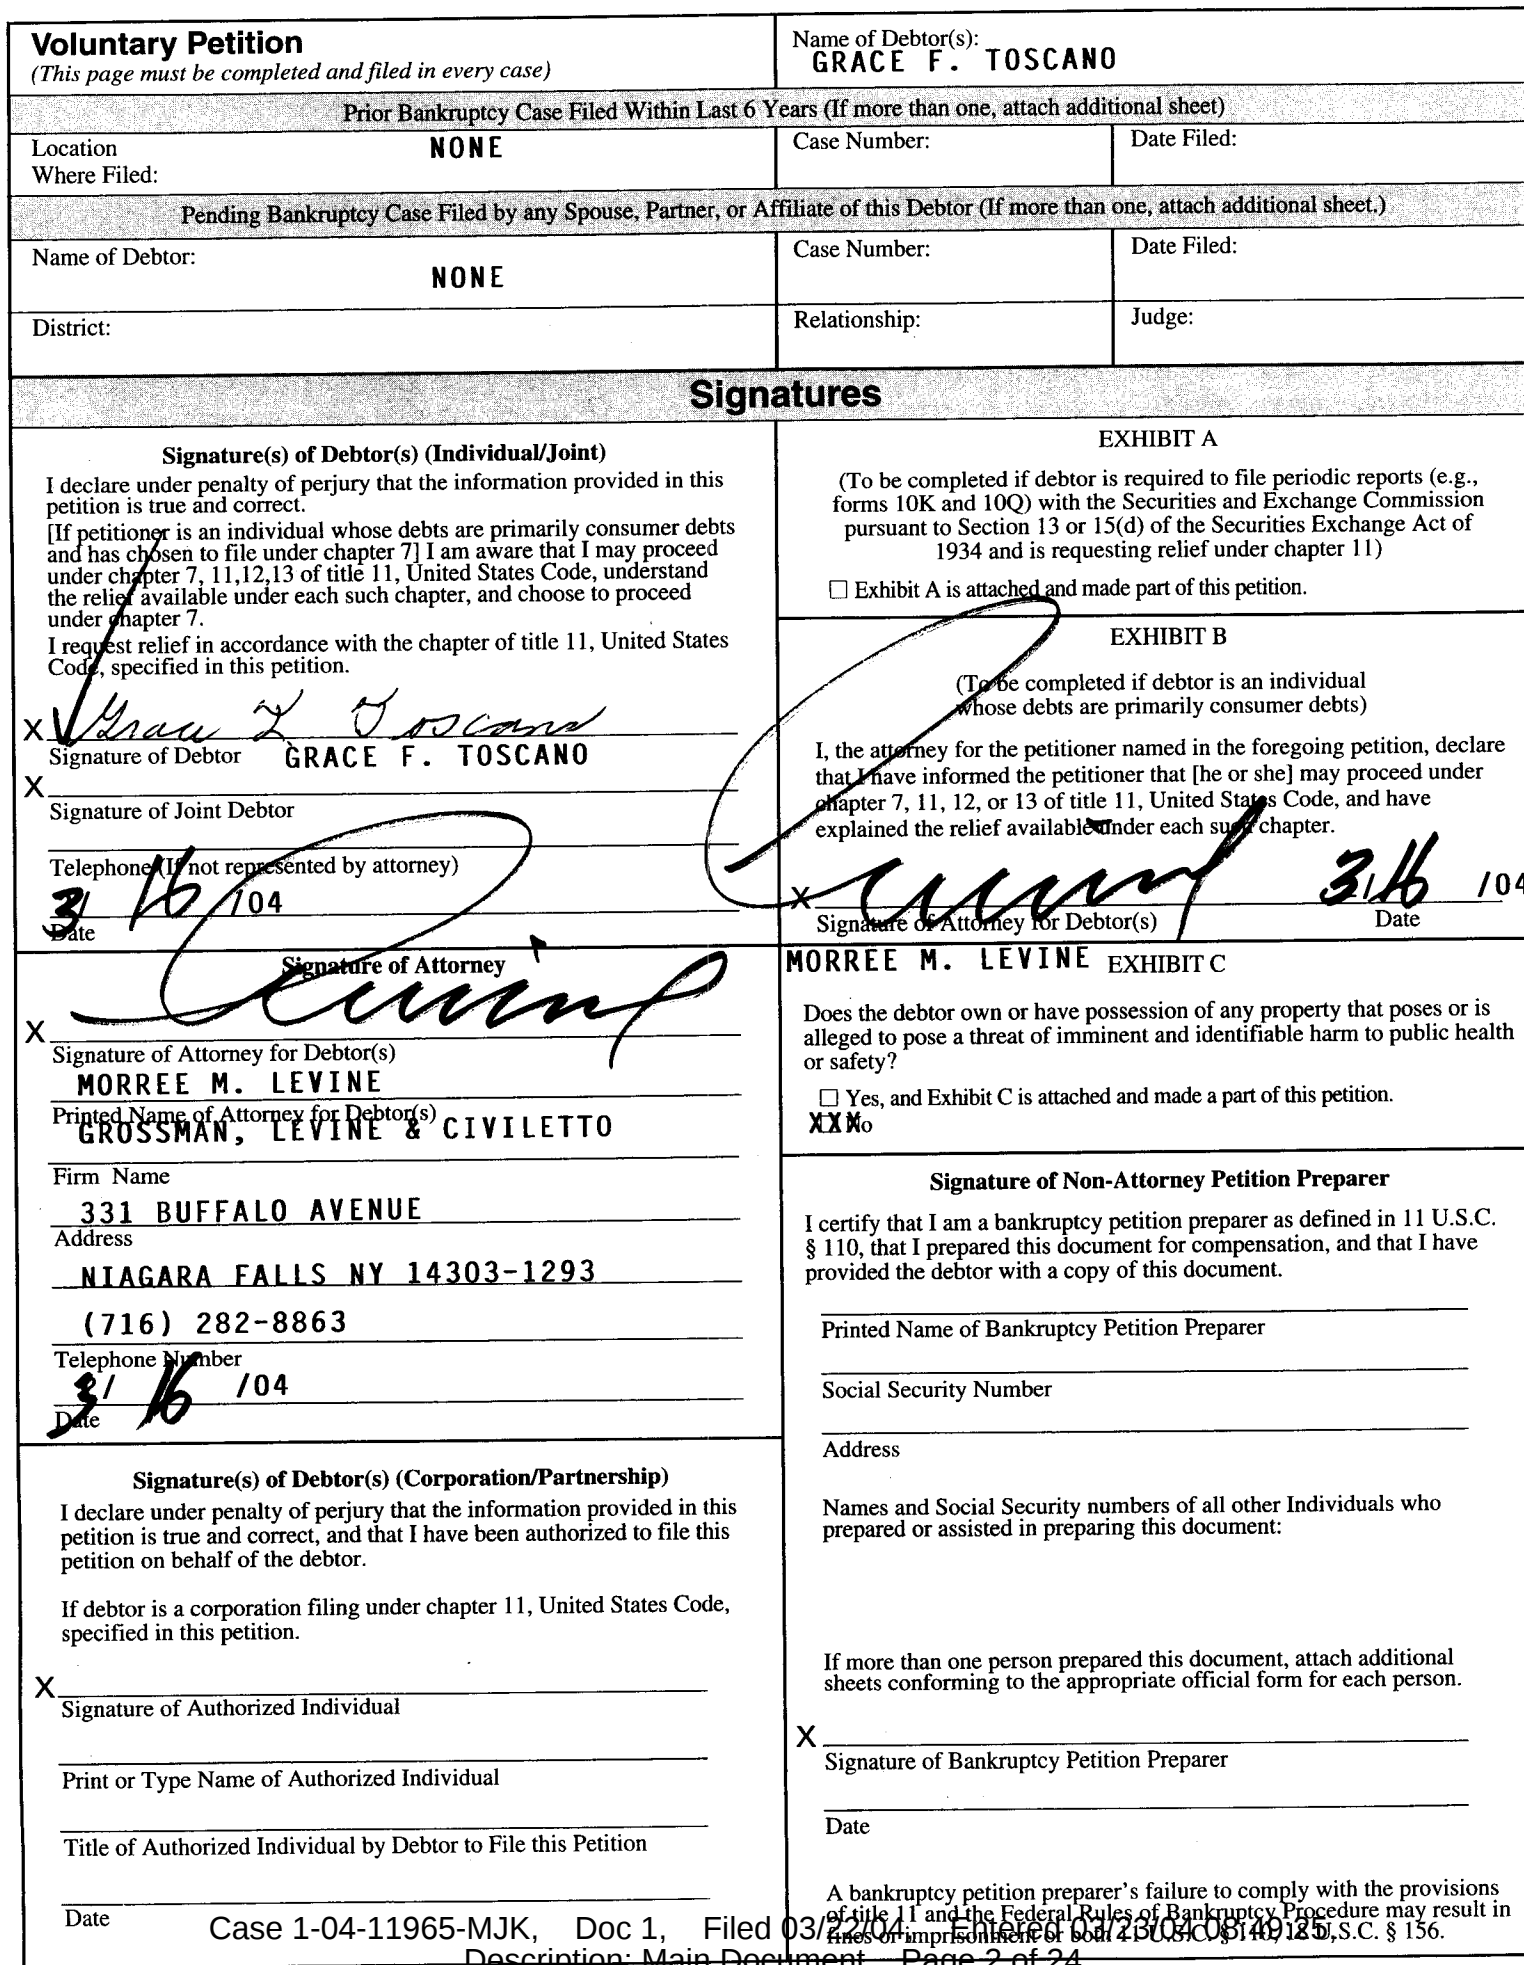 Voluntary Petition
(This page must be completed and filed in every case)
Name of Debtor(s):
GRACE F. TOSCANO
Prior Bankruptcy Case Filed Within Last 6 Years (If more than one, attach additional sheet)
Location
Where Filed:
NONE
Case Number:
Date Filed:
Pending Bankruptcy Case Filed by any Spouse, Partner, or Affiliate of this Debtor (If more than one, attach additional sheet.)
Name of Debtor:
NONE
Case Number:
Date Filed:
District:
Relationship:
Judge:
Signatures
Signature(s) of Debtor(s) (Individual/Joint)
I declare under penalty of perjury that the information provided in this
petition is true and correct.
[If petitioner is an individual whose debts are primarily consumer debts
and has chosen to file under chapter 7] I am aware that I may proceed
under chapter 7, 11,12,13 of title 11, United States Code, understand
the relief available under each such chapter, and choose to proceed
under chapter 7.
I request relief in accordance with the chapter of title 11, United States
Code, specified in this petition.
X Grace F. Toscano
Signature of Debtor GRACE F. TOSCANO
X
Signature of Joint Debtor
Telephone (If not represented by attorney)
3/ 16 /04
Date
Signature of Attorney
X
Signature of Attorney for Debtor(s)
MORREE M. LEVINE
Printed Name of Attorney for Debtor(s)
GROSSMAN, LEVINE & CIVILETTO
Firm Name
331 BUFFALO AVENUE
Address
NIAGARA FALLS NY 14303-1293
(716) 282-8863
Telephone Number
3/ 16 /04
Date
Signature(s) of Debtor(s) (Corporation/Partnership)
I declare under penalty of perjury that the information provided in this
petition is true and correct, and that I have been authorized to file this
petition on behalf of the debtor.
If debtor is a corporation filing under chapter 11, United States Code,
specified in this petition.
X
Signature of Authorized Individual
Print or Type Name of Authorized Individual
Title of Authorized Individual by Debtor to File this Petition
Date
EXHIBIT A
(To be completed if debtor is required to file periodic reports (e.g.,
forms 10K and 10Q) with the Securities and Exchange Commission
pursuant to Section 13 or 15(d) of the Securities Exchange Act of
1934 and is requesting relief under chapter 11)
☐ Exhibit A is attached and made part of this petition.
EXHIBIT B
(To be completed if debtor is an individual
whose debts are primarily consumer debts)
I, the attorney for the petitioner named in the foregoing petition, declare
that I have informed the petitioner that [he or she] may proceed under
chapter 7, 11, 12, or 13 of title 11, United States Code, and have
explained the relief available under each such chapter.
X 3/16 /04
Signature of Attorney for Debtor(s) Date
MORREE M. LEVINE EXHIBIT C
Does the debtor own or have possession of any property that poses or is
alleged to pose a threat of imminent and identifiable harm to public health
or safety?
☐ Yes, and Exhibit C is attached and made a part of this petition.
XXX No
Signature of Non-Attorney Petition Preparer
I certify that I am a bankruptcy petition preparer as defined in 11 U.S.C.
§ 110, that I prepared this document for compensation, and that I have
provided the debtor with a copy of this document.
Printed Name of Bankruptcy Petition Preparer
Social Security Number
Address
Names and Social Security numbers of all other Individuals who
prepared or assisted in preparing this document:
If more than one person prepared this document, attach additional
sheets conforming to the appropriate official form for each person.
X
Signature of Bankruptcy Petition Preparer
Date
A bankruptcy petition preparer's failure to comply with the provisions
of title 11 and the Federal Rules of Bankruptcy Procedure may result in
fines or imprisonment or both 11 U.S.C. § 110; 18 U.S.C. § 156.
Case 1-04-11965-MJK, Doc 1, Filed 03/22/04, Entered 03/23/04 08:49:25,
Description: Main Document , Page 2 of 24